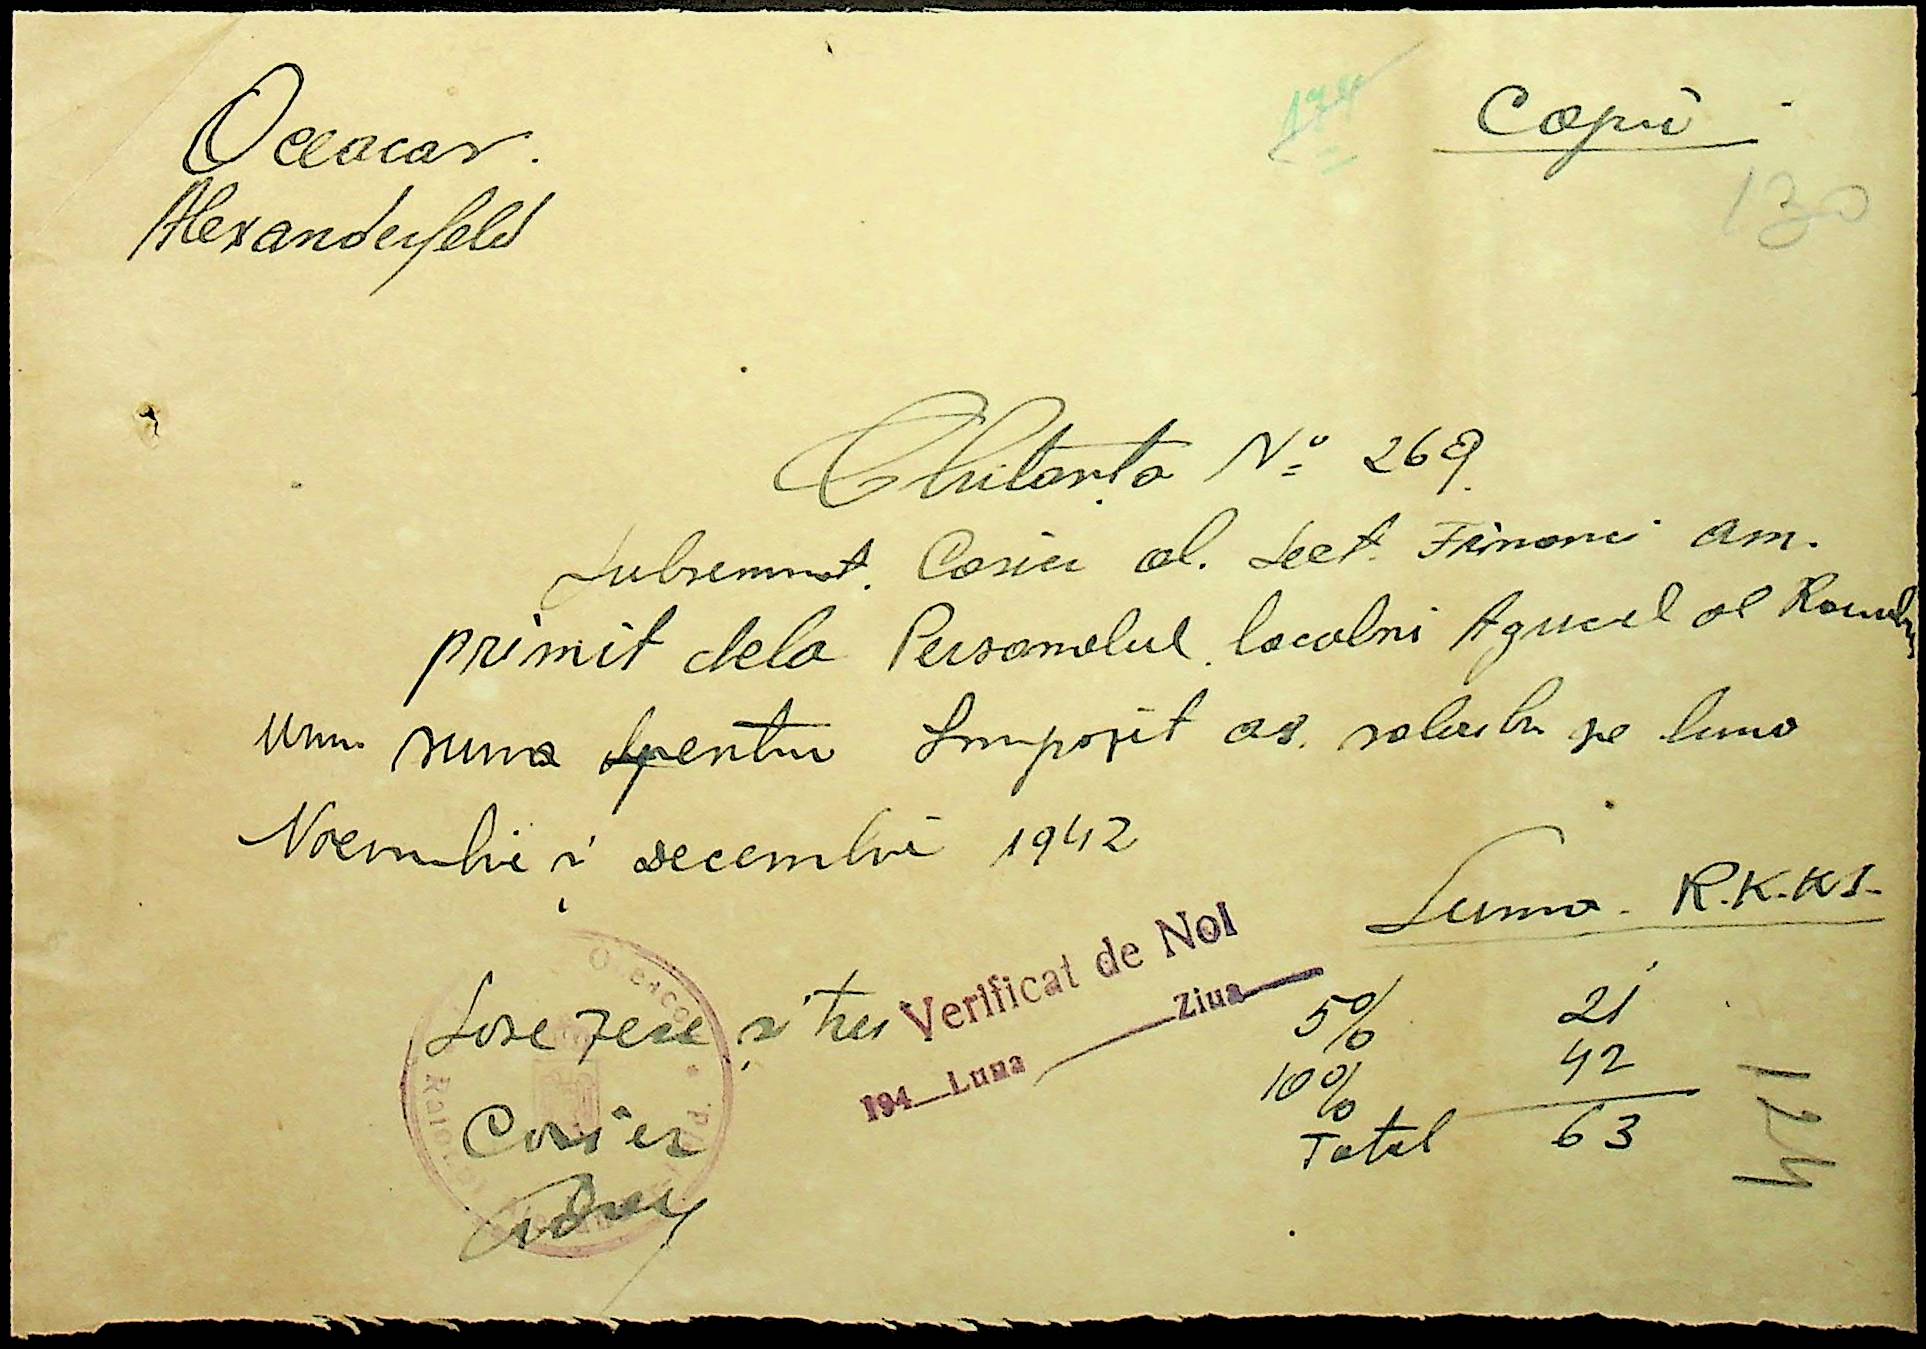 Oceacov.
Alexanderfeld
174
Copie
130
Chitanța Nº 269
Subsemnat. Casier al. Sect. Financi am.
primit dela Personalul localni Agricol al
suma pentru Impozit as. salariilor pe luna
Noembrie și Decembrie 1942
Suma. R.K.KS.
Verificat de Noi
194 Luna Ziua
Șase zeci și trei
5% 21
10% 42
Total 63
Casier
124